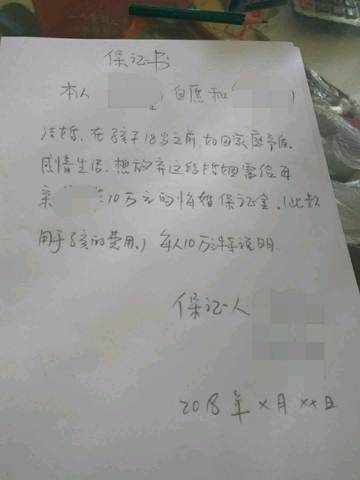 保证书
本人 自愿和( )
结婚,在孩子18岁之前如因家庭
感情生活,想放弃这段婚姻需给
10万元的悔婚保证金。(此款
用于孩的费用。)每人10万 说明
保证人
2018年×月××日